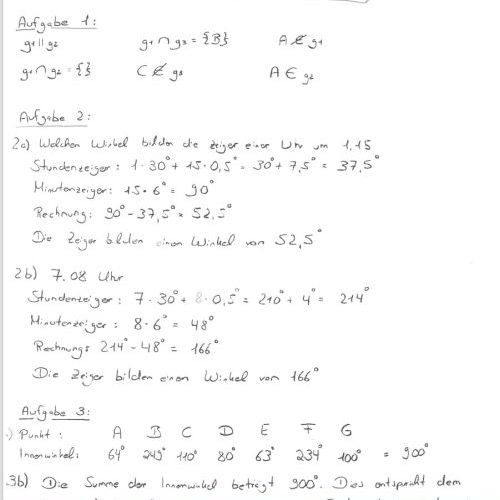 Aufgabe 1:
g1 || g2 g1 ∩ g3 = {B} A ∉ g1
g1 ∩ g2 = {} C ∉ g3 A ∈ g2
Aufgabe 2:
2a) Welchen Winkel bilden die Zeiger einer Uhr um 1.15
Stundenzeiger: 1·30° + 15·0,5° = 30° + 7,5° = 37,5°
Minutenzeiger: 15·6° = 90°
Rechnung: 90° - 37,5° = 52,5°
Die Zeiger bilden einen Winkel von 52,5°
2b) 7.08 Uhr
Stundenzeiger: 7·30° + 8·0,5° = 210° + 4° = 214°
Minutenzeiger: 8·6° = 48°
Rechnung: 214° - 48° = 166°
Die Zeiger bilden einen Winkel von 166°
Aufgabe 3:
Punkt: A B C D E F G
Innenwinkel: 64° 249° 110° 80° 63° 234° 100° = 900°
3b) Die Summe der Innenwinkel beträgt 900°. Dies entspricht dem